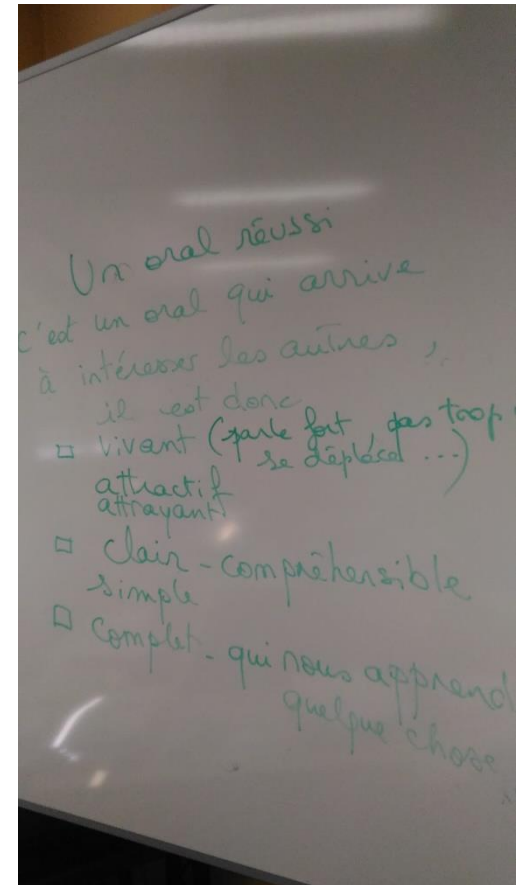 Un oral réussi
c'est un oral qui arrive
à intéresser les autres,
il est donc
□ vivant (parle fort, pas trop
se déplace ...)
attractif
attrayant
□ clair - compréhensible
simple
□ complet - qui nous apprend
quelque chose